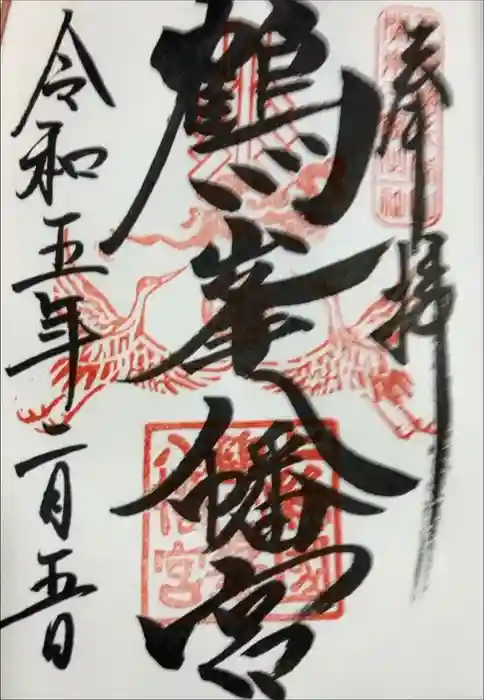 奉拝
鶴峯八幡宮
令和五年二月五日
八幡宮